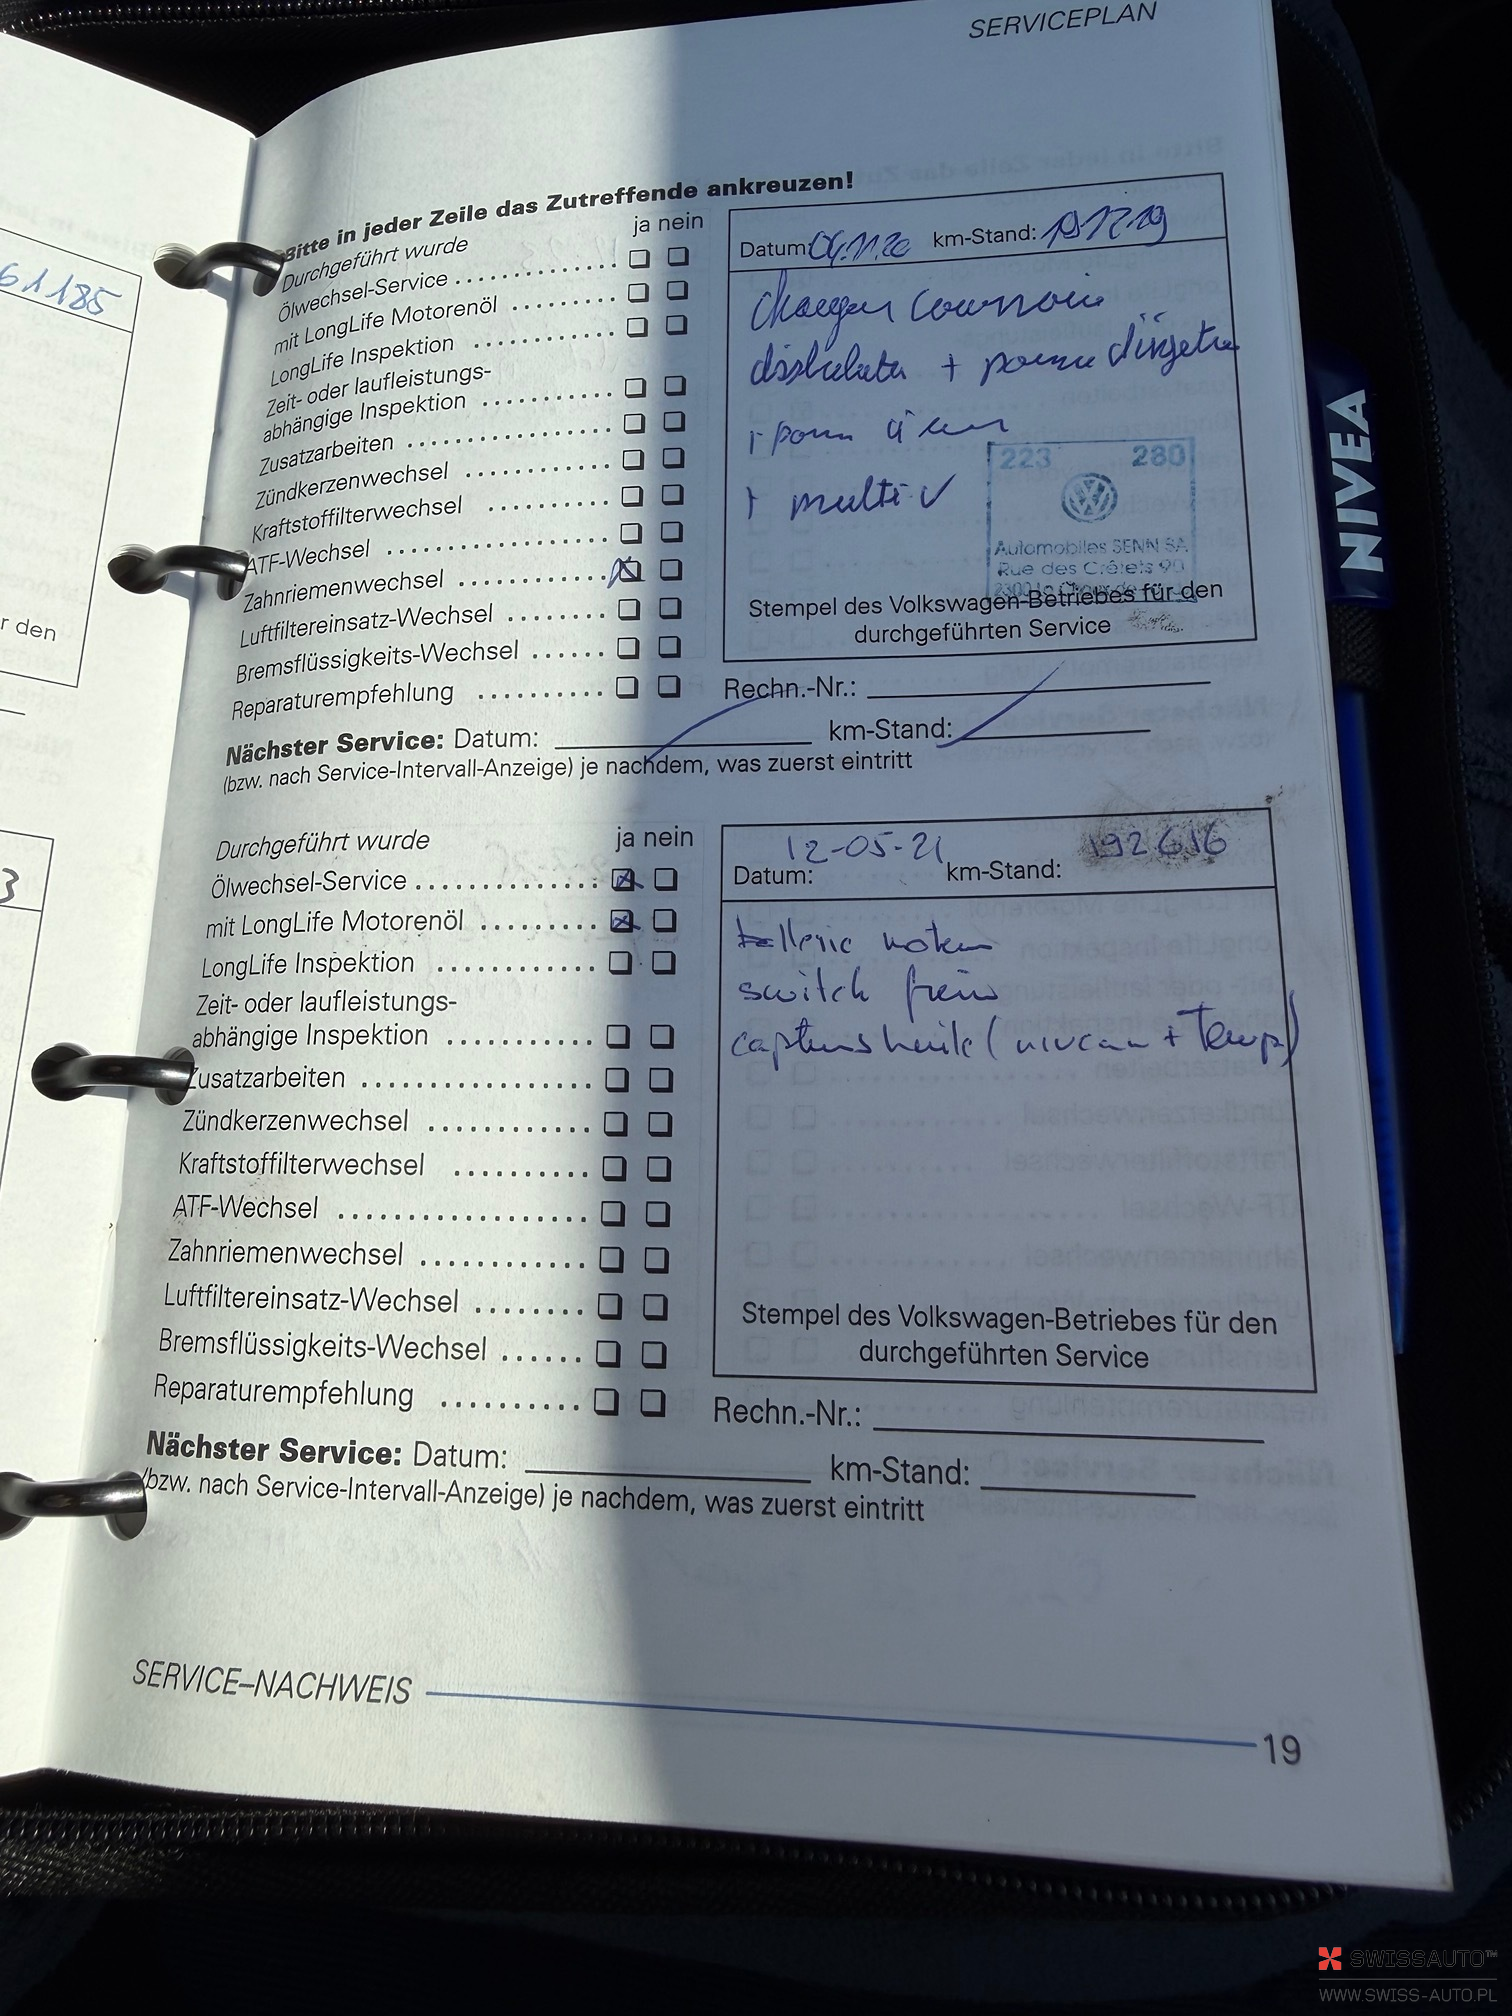 SERVICEPLAN
Bitte in jeder Zeile das Zutreffende ankreuzen!
Durchgeführt wurde ja nein
Ölwechsel-Service
mit LongLife Motorenöl
LongLife Inspektion
Zeit- oder laufleistungs-
abhängige Inspektion
Zusatzarbeiten
Zündkerzenwechsel
Kraftstoffilterwechsel
ATF-Wechsel
Zahnriemenwechsel
Luftfiltereinsatz-Wechsel
Bremsflüssigkeits-Wechsel
Reparaturempfehlung
Datum: 04.11.20 km-Stand:
+ multi-V
223 280
Automobiles SENN SA
Rue des Crêtets 90
Stempel des Volkswagen-Betriebes für den
durchgeführten Service
Rechn.-Nr.:
Nächster Service: Datum: km-Stand:
(bzw. nach Service-Intervall-Anzeige) je nachdem, was zuerst eintritt
Durchgeführt wurde ja nein
Ölwechsel-Service
mit LongLife Motorenöl
LongLife Inspektion
Zeit- oder laufleistungs-
abhängige Inspektion
Zusatzarbeiten
Zündkerzenwechsel
Kraftstoffilterwechsel
ATF-Wechsel
Zahnriemenwechsel
Luftfiltereinsatz-Wechsel
Bremsflüssigkeits-Wechsel
Reparaturempfehlung
Datum: 12-05-21 km-Stand: 192616
switch frein
(niveau + Temp)
Stempel des Volkswagen-Betriebes für den
durchgeführten Service
Rechn.-Nr.:
Nächster Service: Datum: km-Stand:
(bzw. nach Service-Intervall-Anzeige) je nachdem, was zuerst eintritt
SERVICE–NACHWEIS
19
61185
r den
3
NIVEA
SWISSAUTO™
WWW.SWISS-AUTO.PL